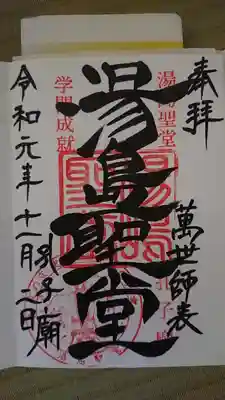 奉拝
湯島聖堂
萬世師表
湯島聖堂
学問成就
孔子廟
令和元年十一月二日